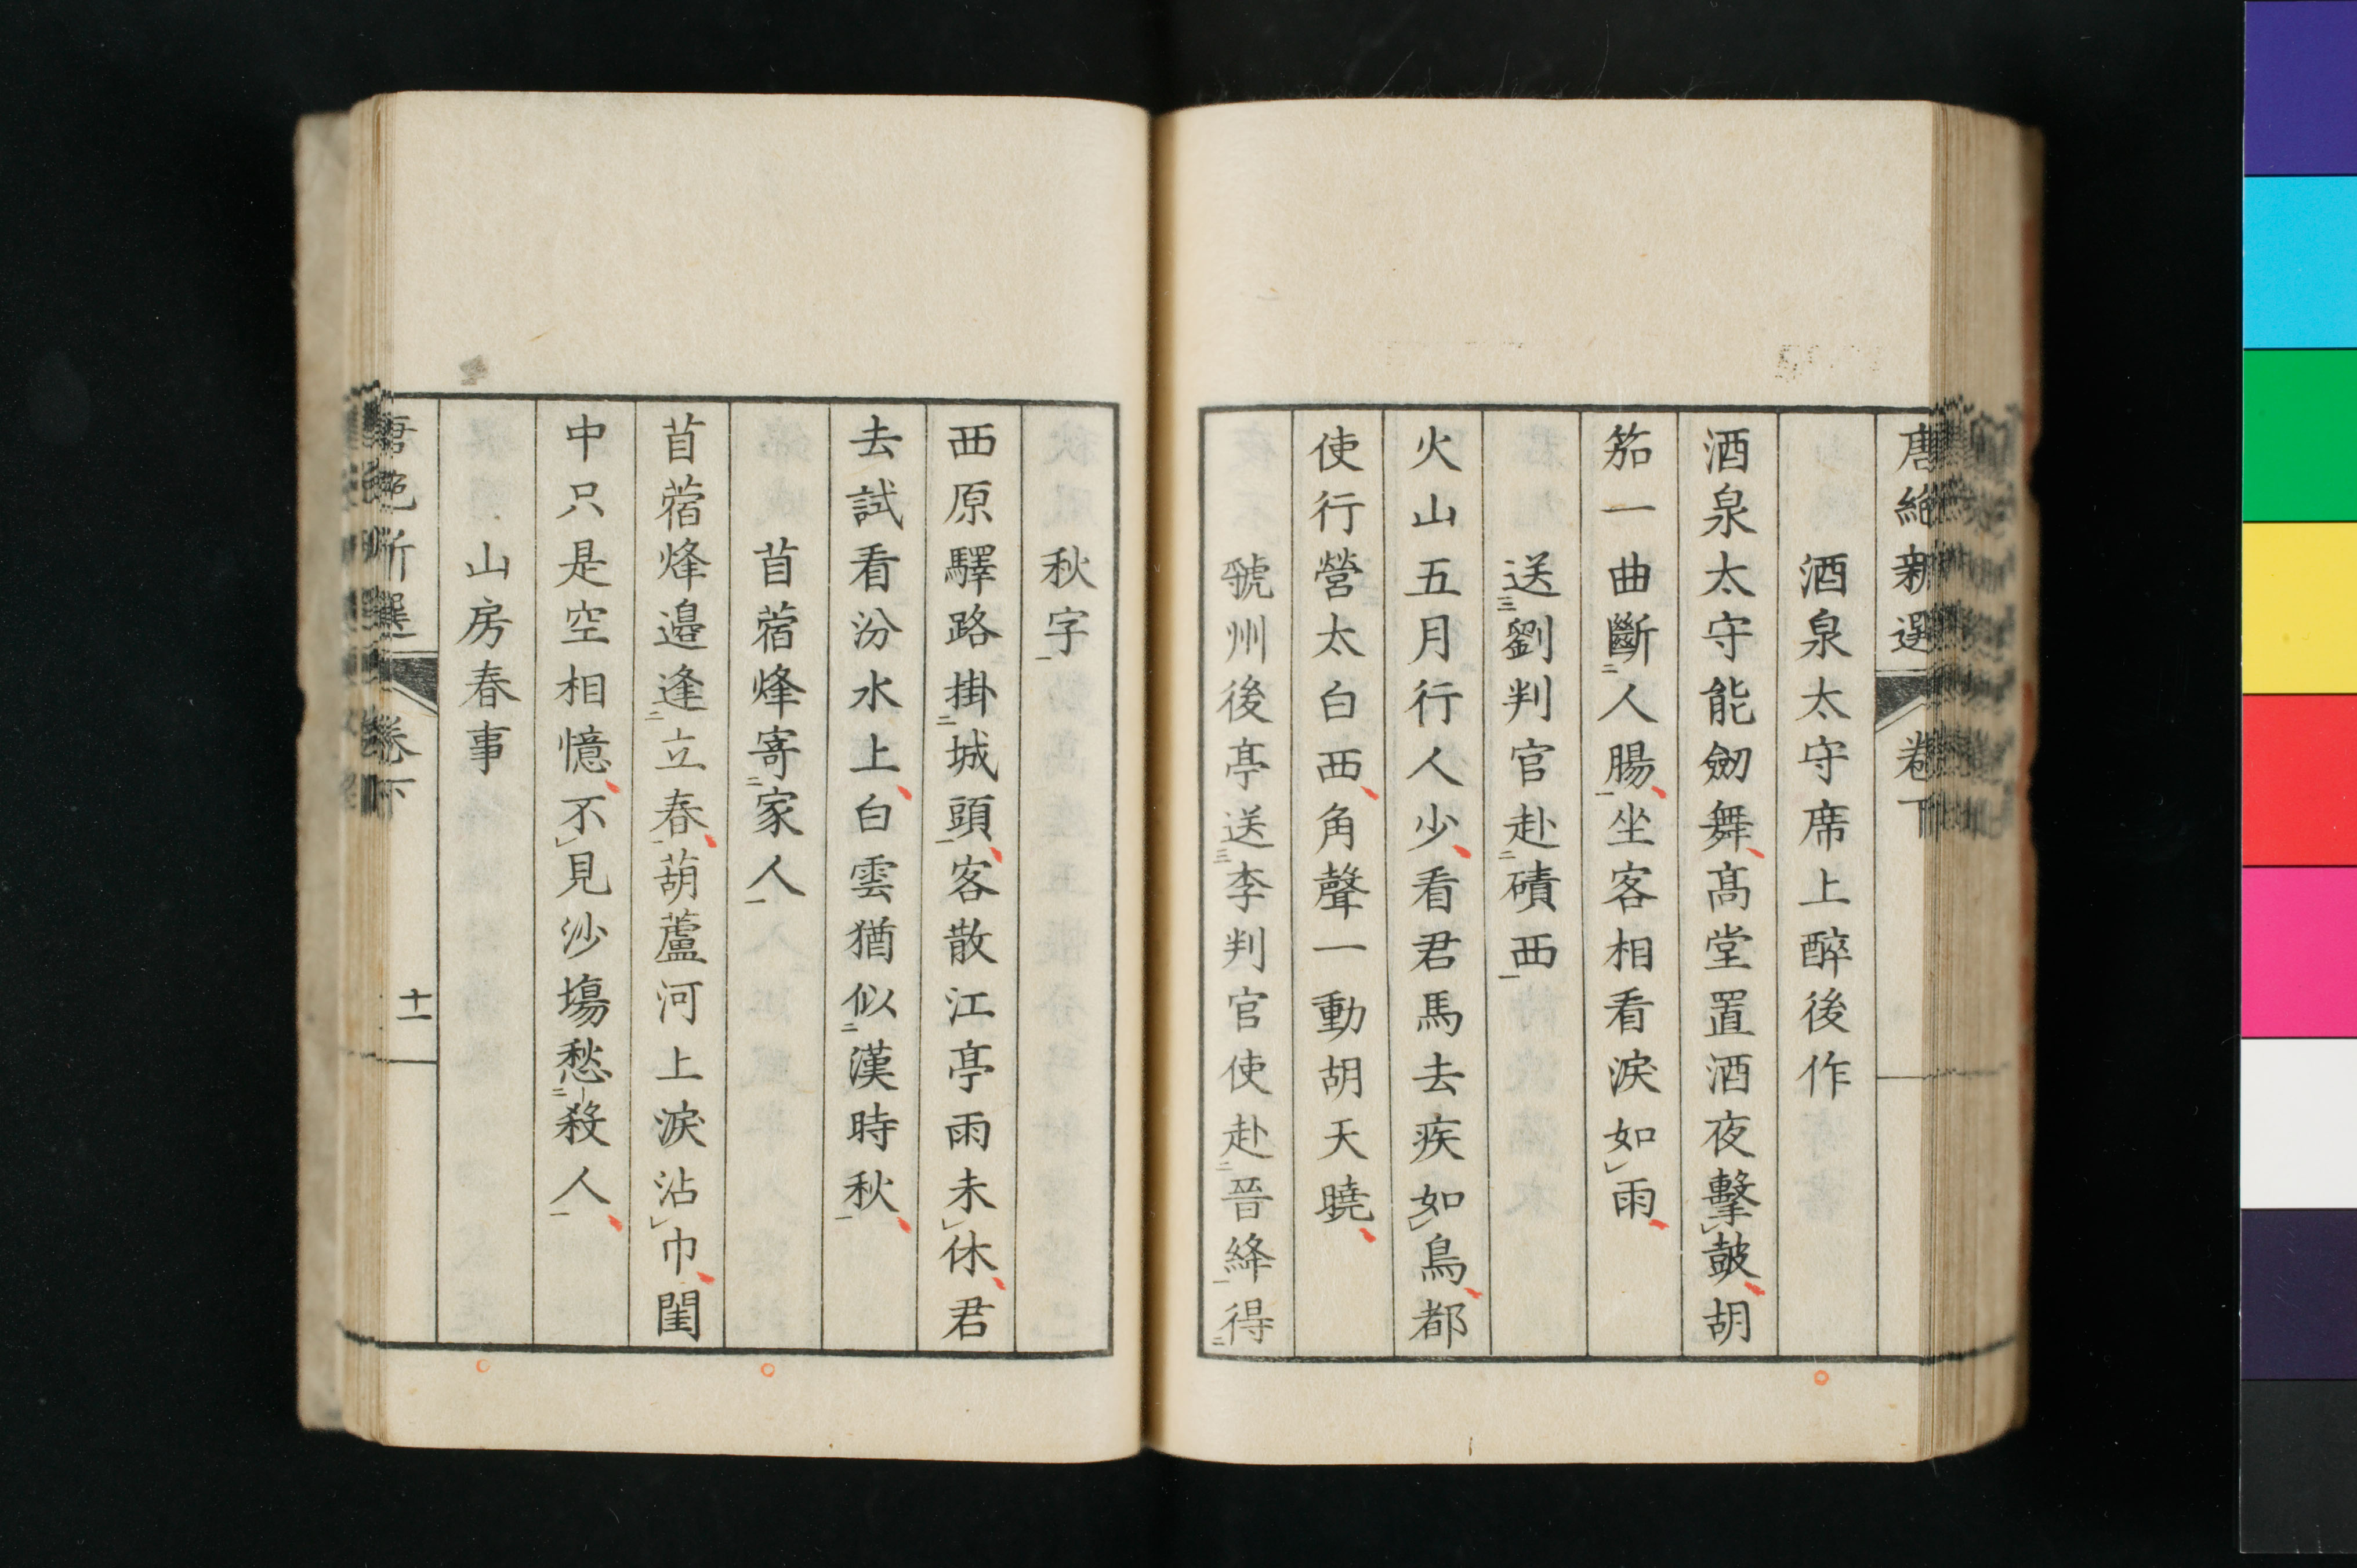 唐絶新選 卷下
酒泉太守席上醉後作
酒泉太守能劒舞髙堂置酒夜擊皷胡
笳一曲斷二人腸一坐客相看淚如レ雨
送三劉判官赴二磧西一
火山五月行人少看君馬去疾如レ鳥都
使行營太白西角聲一動胡天曉
虢州後亭送三李判官使赴二晉絳一得二
秋字一
西原驛路掛二城頭一客散江亭雨未レ休君
去試看汾水上白雲猶似二漢時秋一
苜蓿烽寄二家人一
苜蓿烽邉逢二立春一葫蘆河上淚沾レ巾閨
中只是空相憶不レ見沙塲愁二殺人一
山房春事
唐絶新選 卷下 十一